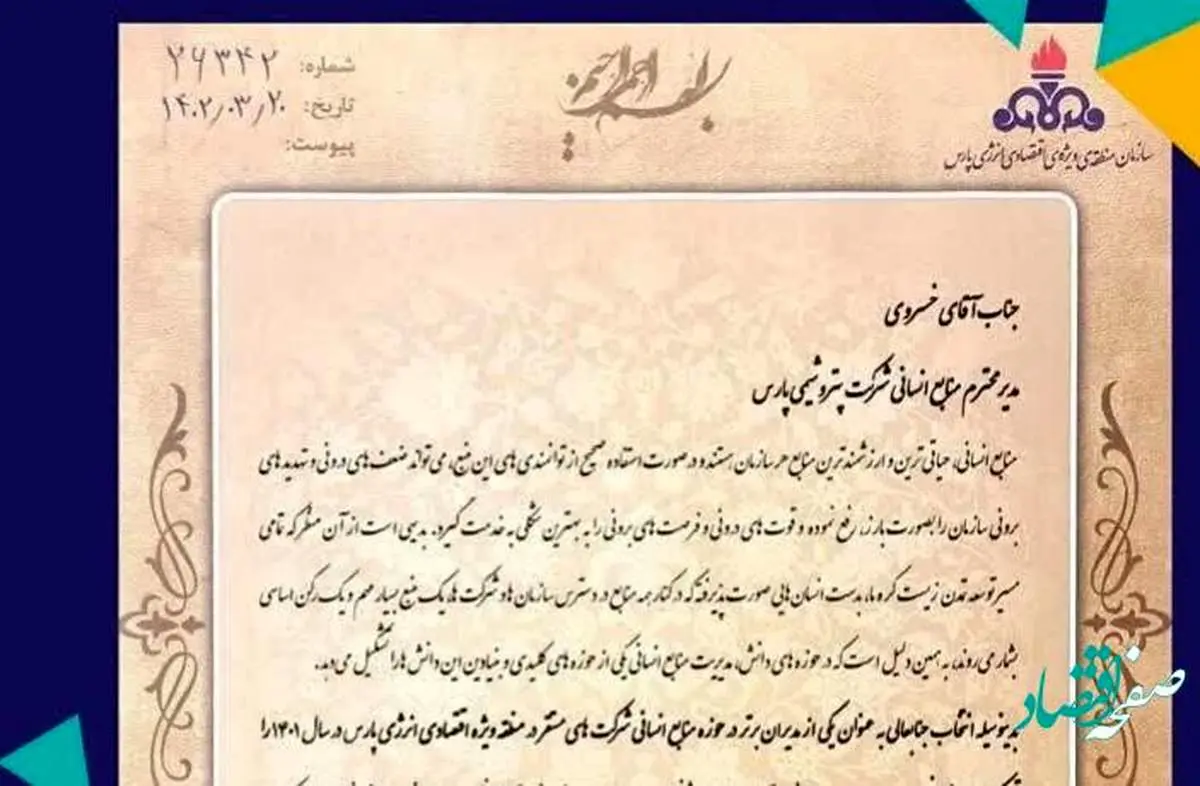 بسم الله الرحمن الرحیم
شماره: ۲۶۳۴۲
تاریخ: ۱۴۰۲/۰۳/۲۰
پیوست:
سازمان منطقه‌ی ویژه‌ی اقتصادی انرژی پارس
جناب آقای خسروی
مدیر محترم منابع انسانی شرکت پتروشیمی پارس
منابع انسانی، حیاتی ترین و ارزشمندترین منابع هر سازمان هستند و در صورت استفاده صحیح از توانمندی های این منبع، می تواند ضعف های درونی و تهدیدهای
برونی سازمان را بصورت بارز، رفع نموده و قوت های درونی و فرصت های برونی را به بهترین شکلی به خدمت گیرد. بدیهی است از آن منظر که تمامی
مسیر توسعه تمدن زیست کره ما، بدست انسان هایی صورت پذیرفته که در کنار همه منابع در دسترس سازمان ها و شرکت ها، یک منبع بسیار مهم و یک رکن اساسی
بشمار می روند، به همین دلیل است که در حوزه های دانش، مدیریت منابع انسانی یکی از حوزه های کلیدی و بنیادین این دانش ها را تشکیل می دهد.
بدینوسیله انتخاب جنابعالی به عنوان یکی از مدیران برتر در حوزه منابع انسانی شرکت های مستقر در منطقه ویژه اقتصادی انرژی پارس در سال ۱۴۰۱ را
صفحه اقتصاد